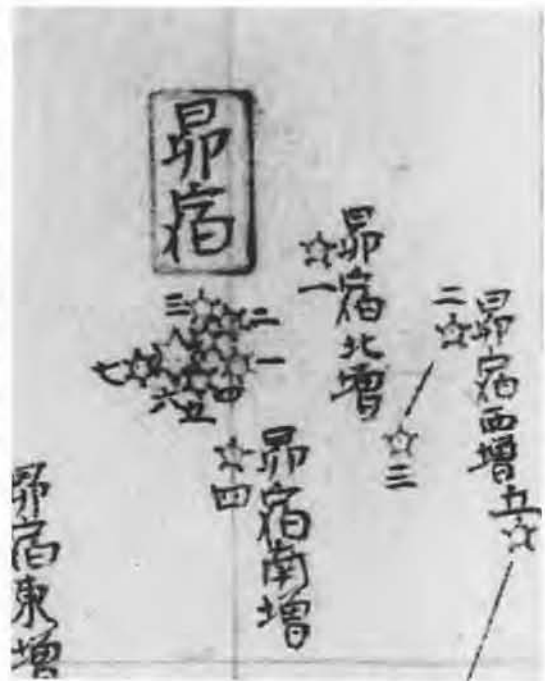 昴宿
三
二
一
七
六
五
四
昴宿北增
一
昴宿西增
二
三
五
昴宿南增
四
昴宿東增